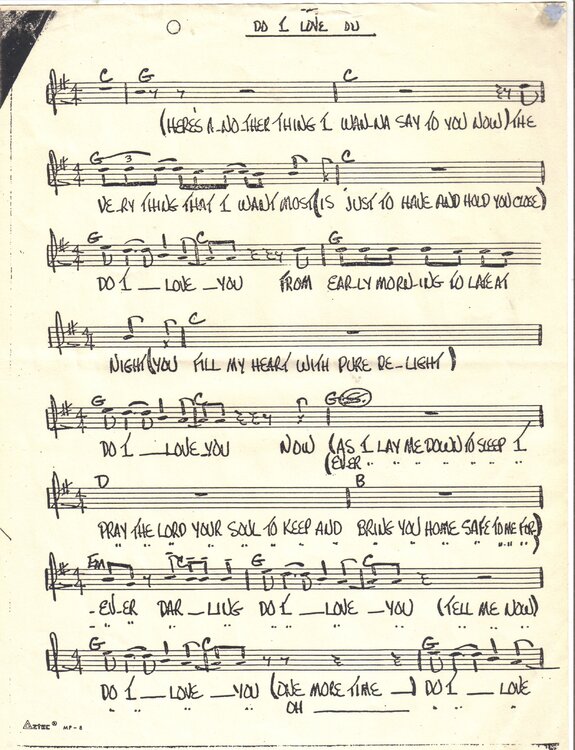 DO I LOVE OU
C G C
(HERE'S A-NO THER THING I WAN-NA SAY TO YOU NOW) THE
G 3 C
VE-RY THING THAT I WANT MOST (IS JUST TO HAVE AND HOLD YOU CLOSE)
G C G
DO I — LOVE — YOU FROM EAR-LY MORN-ING TO LATE AT
C
NIGHT (YOU FILL MY HEART WITH PURE DE-LIGHT)
G C G
DO I — LOVE YOU NOW (AS I LAY ME DOWN TO SLEEP I
(EVER " " " " " "
D B
PRAY THE LORD YOUR SOUL TO KEEP AND BRING YOU HOME SAFE TO ME FOR)
" " " " " " " " " " " " "
Em C G C
- EV-ER DAR-LING DO I — LOVE — YOU (TELL ME NOW)
" " " " " " " " "
G C G
DO I — LOVE — YOU (ONE MORE TIME —) DO I — LOVE
OH —
AZTEC® MP-8